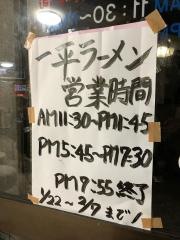 11:30~
一平ラーメン
営業時間
AM11:30~PM1:45
PM5:45~PM7:30
PM7:55終了
1/22~3/7まで!